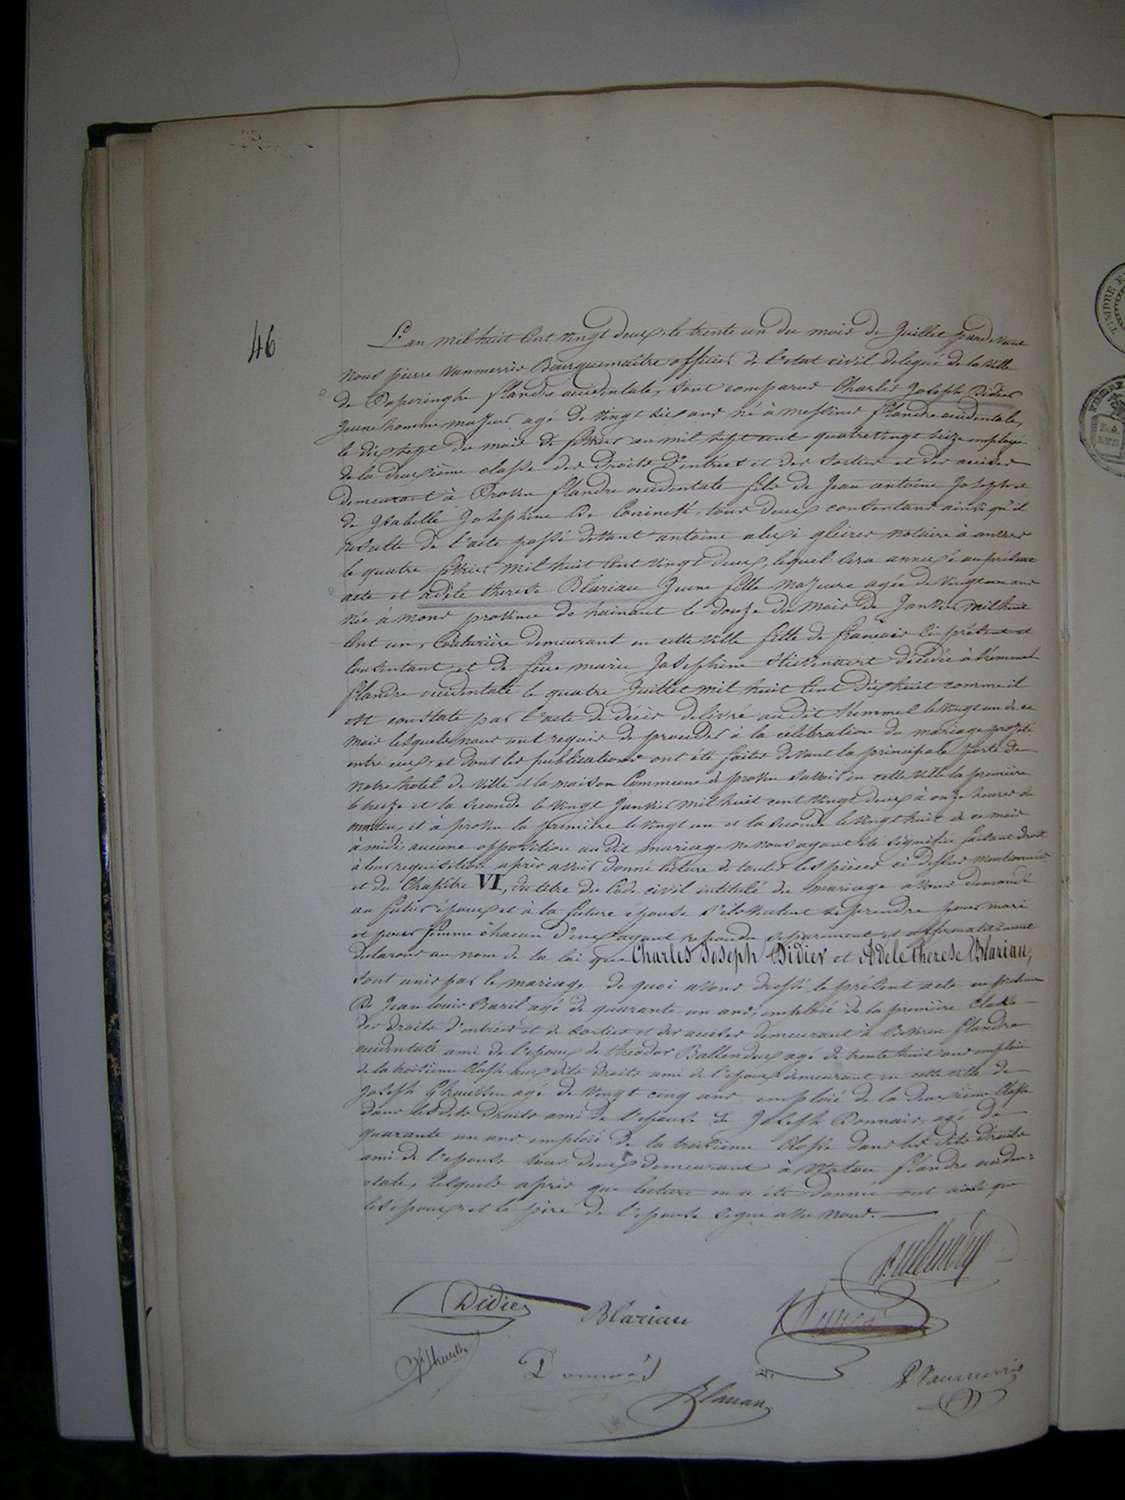 46
L'an mil huit cent vingt deux, le trente un du mois de Juillet pardevant
nous pierre vanmerris Bourguemaitre officier de l'etat civil delegué de la ville
de Poperinghe flandre occidentale, sont comparus Charles Joseph Didier
jeune homme majeur agé de vingt six ans né à messines flandre occidentale,
le dix sept du mois de fevrier an mil sept cent quatrevingt seize employé
de la deuxième classe des Droits d'entrées et des sorties et des accises
demeurant à Proven flandre occidentale fils de Jean antoine Joseph et
de Isabelle Josephine De Coninck tous deux consentans ainsi qu'il
resulte de l'acte passé devant antoine alexi notaire à
le quatre fevrier mil huit cent vingt deux, lequel sera annexé au présent
acte et adèle therese Blariau Jeune fille majeure agée de vingt un ans
née à mons province de hainaut le douze du mois de Janvier mil huit
cent un, Couturière demeurant en cette ville fille de francois ici présent et
Consentant et de feue marie Josephine décédée à Kemmel
flandre occidentale le quatre Juillet mil huit cent dix huit comme il
est constaté par l'acte de décès délivré au dit Kemmel le vingt un de ce
mois lesquels nous ont requis de proceder à la celebration du mariage projetté
entre eux, et dont les publications ont été faites devant la principale porte de
notre hotel de ville et la maison Commune de proven savoir en cette ville la première
le treize et la seconde le vingt Janvier mil huit cent vingt deux à onze heures du
matin, et à proven la première le vingt un et la seconde le vingt huit de ce mois
à midi, aucune opposition au dit mariage ne nous ayant été signifiée faisant droit
à leur requisition après avoir donné lecture de toutes les pièces ci dessus mentionnées
et du Chapitre VI, du titre du Code civil intitulé du mariage avons demandé
au futur époux et à la future épouse s'ils veulent se prendre pour mari
et pour femme chacun d'eux ayant repondu séparément et affirmativement
declarons au nom de la loi que Charles Joseph Didier et Adele therese Blariau,
sont unis par le mariage de quoi avons dressé le présent acte en présence
De Jean louis Baril agé de quarante un ans, emploié de la première Classe
des droits d'entrées et de sorties et des accises demeurant à flandre
occidentale ami de l'epoux de théodor Ballendux agé de trente huit ans emploié
de la troisieme Classe aux dits droits ami de l'epoux demeurant en cette ville de
Joseph agé de vingt cinq ans emploié de la deuxieme Classe
dans les dits Droits ami de l'epouse & Joseph Donnais agé de
quarante un ans emploié de la troisieme Classe dans les dits droits
ami de l'epouse tous deux demeurant à Watou flandre occiden=
=tale, lesquels après que lecture en a été donnée ont ainsi que
les epoux et le père de l'epouse signé avec nous.
Didier
Blariau
P Vanmerris
Blariau